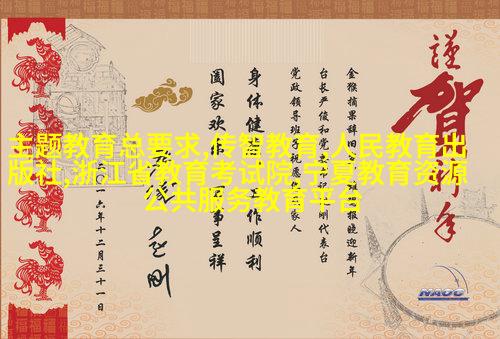 謹賀新年
金猴摘果辞旧 报晓迎新年
台长严俊和党 刚代表台
党政领导班子祝愿您 家人
身体健 工作顺利
阖家欢乐 万事呈祥
二〇一六年十二月三十一日
NAOC
主题教育总要求,传智教育,人民教育出
版社,浙江省教育考试院,宁夏教育资源
公共服务教育平台